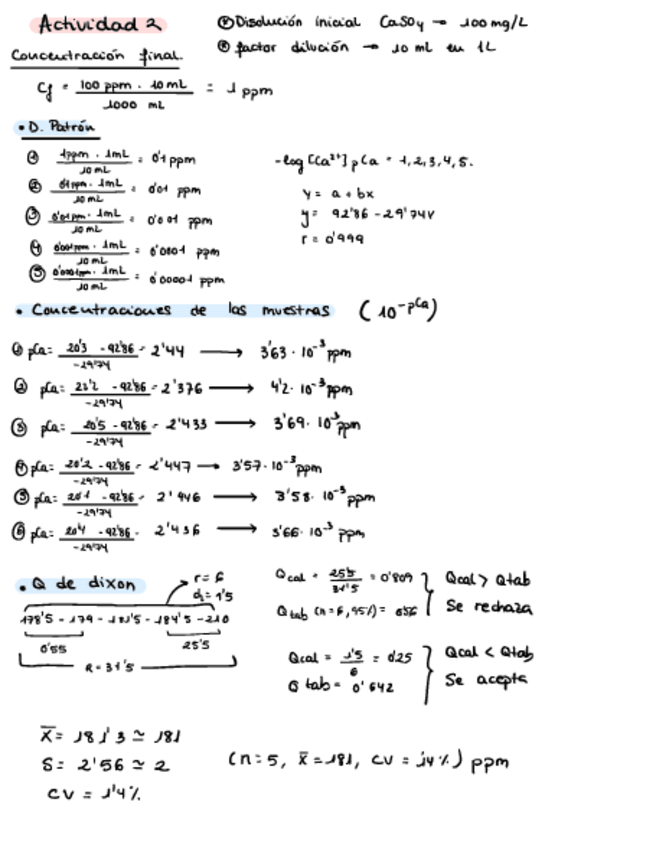 Actividad 2
Disolución inicial CaSO4 → 100 mg/L
factor dilución → 10 mL en 1L
Concentración final.
Cf = 100 ppm · 10 mL / 1000 mL = 1 ppm
• D. Patrón
① 1ppm · 1mL / 10 mL = 0'1 ppm
② 0'1ppm · 1mL / 10 mL = 0'01 ppm
③ 0'01ppm · 1mL / 10 mL = 0'001 ppm
④ 0'001ppm · 1mL / 10 mL = 0'0001 ppm
⑤ 0'0001ppm · 1mL / 10 mL = 0'00001 ppm
-log [Ca²⁺] pCa = 1,2,3,4,5.
y = a + bx
y = 92'86 - 29'74x
r = 0'999
• Concentraciones de las muestras (10^-pCa)
① pCa = 20'3 - 92'86 / -29'74 = 2'44 → 3'63 · 10⁻³ ppm
② pCa = 22'2 - 92'86 / -29'74 = 2'376 → 4'2 · 10⁻³ ppm
③ pCa = 20'5 - 92'86 / -29'74 = 2'433 → 3'69 · 10⁻³ ppm
④ pCa = 20'2 - 92'86 / -29'74 = 2'447 → 3'57 · 10⁻³ ppm
⑤ pCa = 20'1 - 92'86 / -29'74 = 2'446 → 3'58 · 10⁻³ ppm
⑥ pCa = 20'4 - 92'86 / -29'74 = 2'436 → 3'66 · 10⁻³ ppm
• Q de dixon
r = 6
d1 = 1'5
178'5 - 179 - 181'5 - 184'5 - 210
0'55
25'5
R = 31'5
Qcal = 25'5 / 31'5 = 0'809
Qtab (n=6, 95%) = 0'56
Qcal > Qtab
Se rechaza
Qcal = 1'5 / 6 = 0'25
Q tab = 0'642
Qcal < Qtab
Se acepta
x̄ = 181'3 ≃ 181
S = 2'56 ≃ 2
CV = 1'4%
(n=5, x̄ = 181, CV = 1'4%) ppm